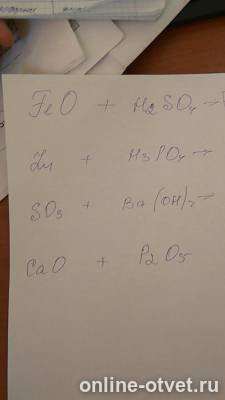 FeO + H2SO4 →
Zn + H3PO4 →
SO3 + Ba(OH)2 →
CaO + P2O5
online-otvet.ru